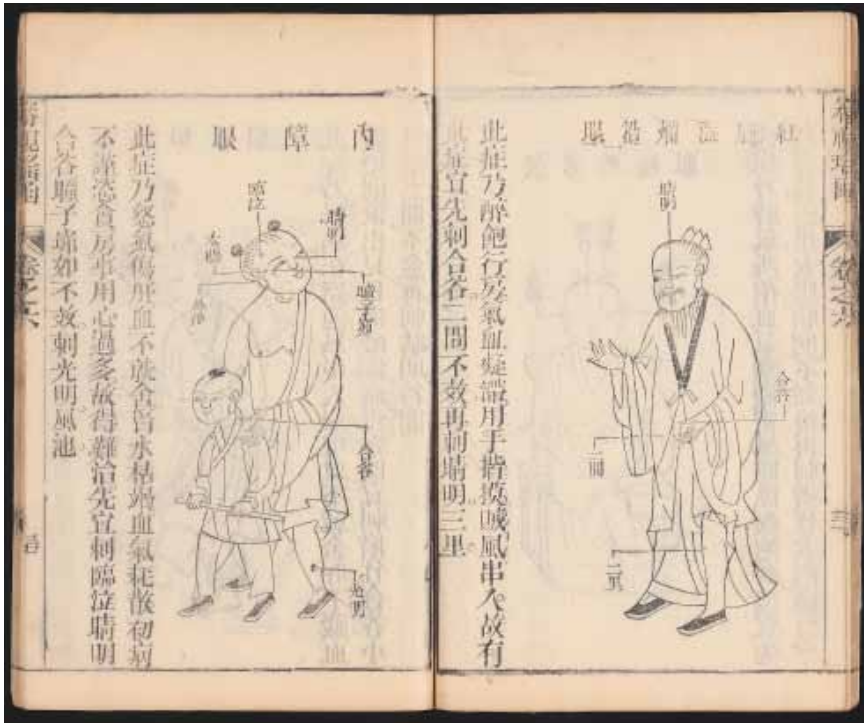 卷之六
紅腫澀爛沿眼
睛明
合谷
二間
三里
此症乃醉飽行房氣血凝滯用手揩摸賊風串入故有
此症宜先刺合谷二間不效再刺睛明三里
內障眼
臨泣
睛明
太陽
瞳子髎
風池
合谷
光明
此症乃怒氣傷肝血不就舍腎水枯竭血氣耗散初病
不謹恣貪房事用心過多故得難治先宜刺臨泣睛明
合谷瞳子髎如不效刺光明風池
卷之六